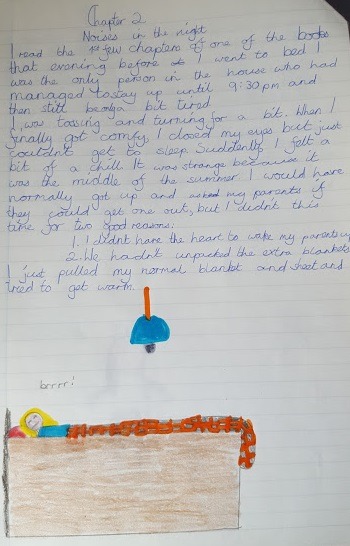 Chapter 2
Noises in the night
I read the 1st few chapters of one of the books
that evening before I went to bed I
was the only person in the house who had
managed to stay up until 9:30pm and
then still a bit tired.
I was tossing and turning for a bit. When I
finally got comfy, I closed my eyes but just
couldn't get to sleep. Suddently I felt a
bit of a chill. It was strange because it
was the muddle of the summer. I would have
normally got up and asked my parents if
they could get one out, but I didn't this
time for two good reasons:
1. I didn't have the heart to wake my parents up
2. We hadn't unpacked the extra blankets
I just pulled my normal blankt and sheet and
tried to get warm.
brrrr!